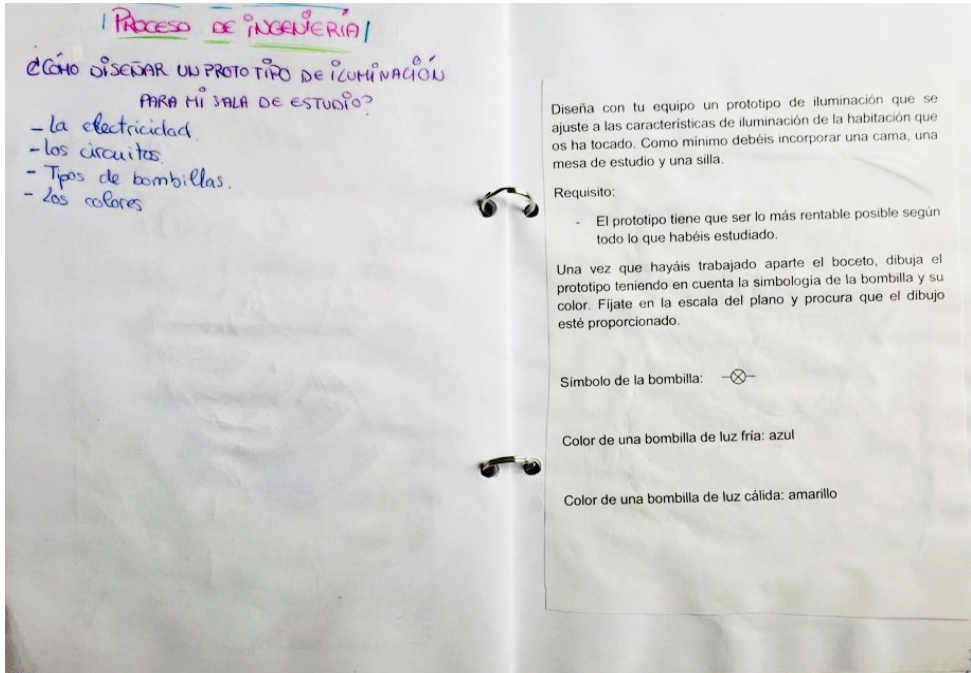 PROCESO DE INGENIERÍA
¿CÓMO DISEÑAR UN PROTOTIPO DE ILUMINACIÓN
PARA MI SALA DE ESTUDIO?
- La electricidad.
- los circuitos.
- Tipos de bombillas.
- Los colores
Diseña con tu equipo un prototipo de iluminación que se
ajuste a las características de iluminación de la habitación que
os ha tocado. Como mínimo debéis incorporar una cama, una
mesa de estudio y una silla.
Requisito:
- El prototipo tiene que ser lo más rentable posible según
todo lo que habéis estudiado.
Una vez que hayáis trabajado aparte el boceto, dibuja el
prototipo teniendo en cuenta la simbología de la bombilla y su
color. Fíjate en la escala del plano y procura que el dibujo
esté proporcionado.
Símbolo de la bombilla:
Color de una bombilla de luz fría: azul
Color de una bombilla de luz cálida: amarillo